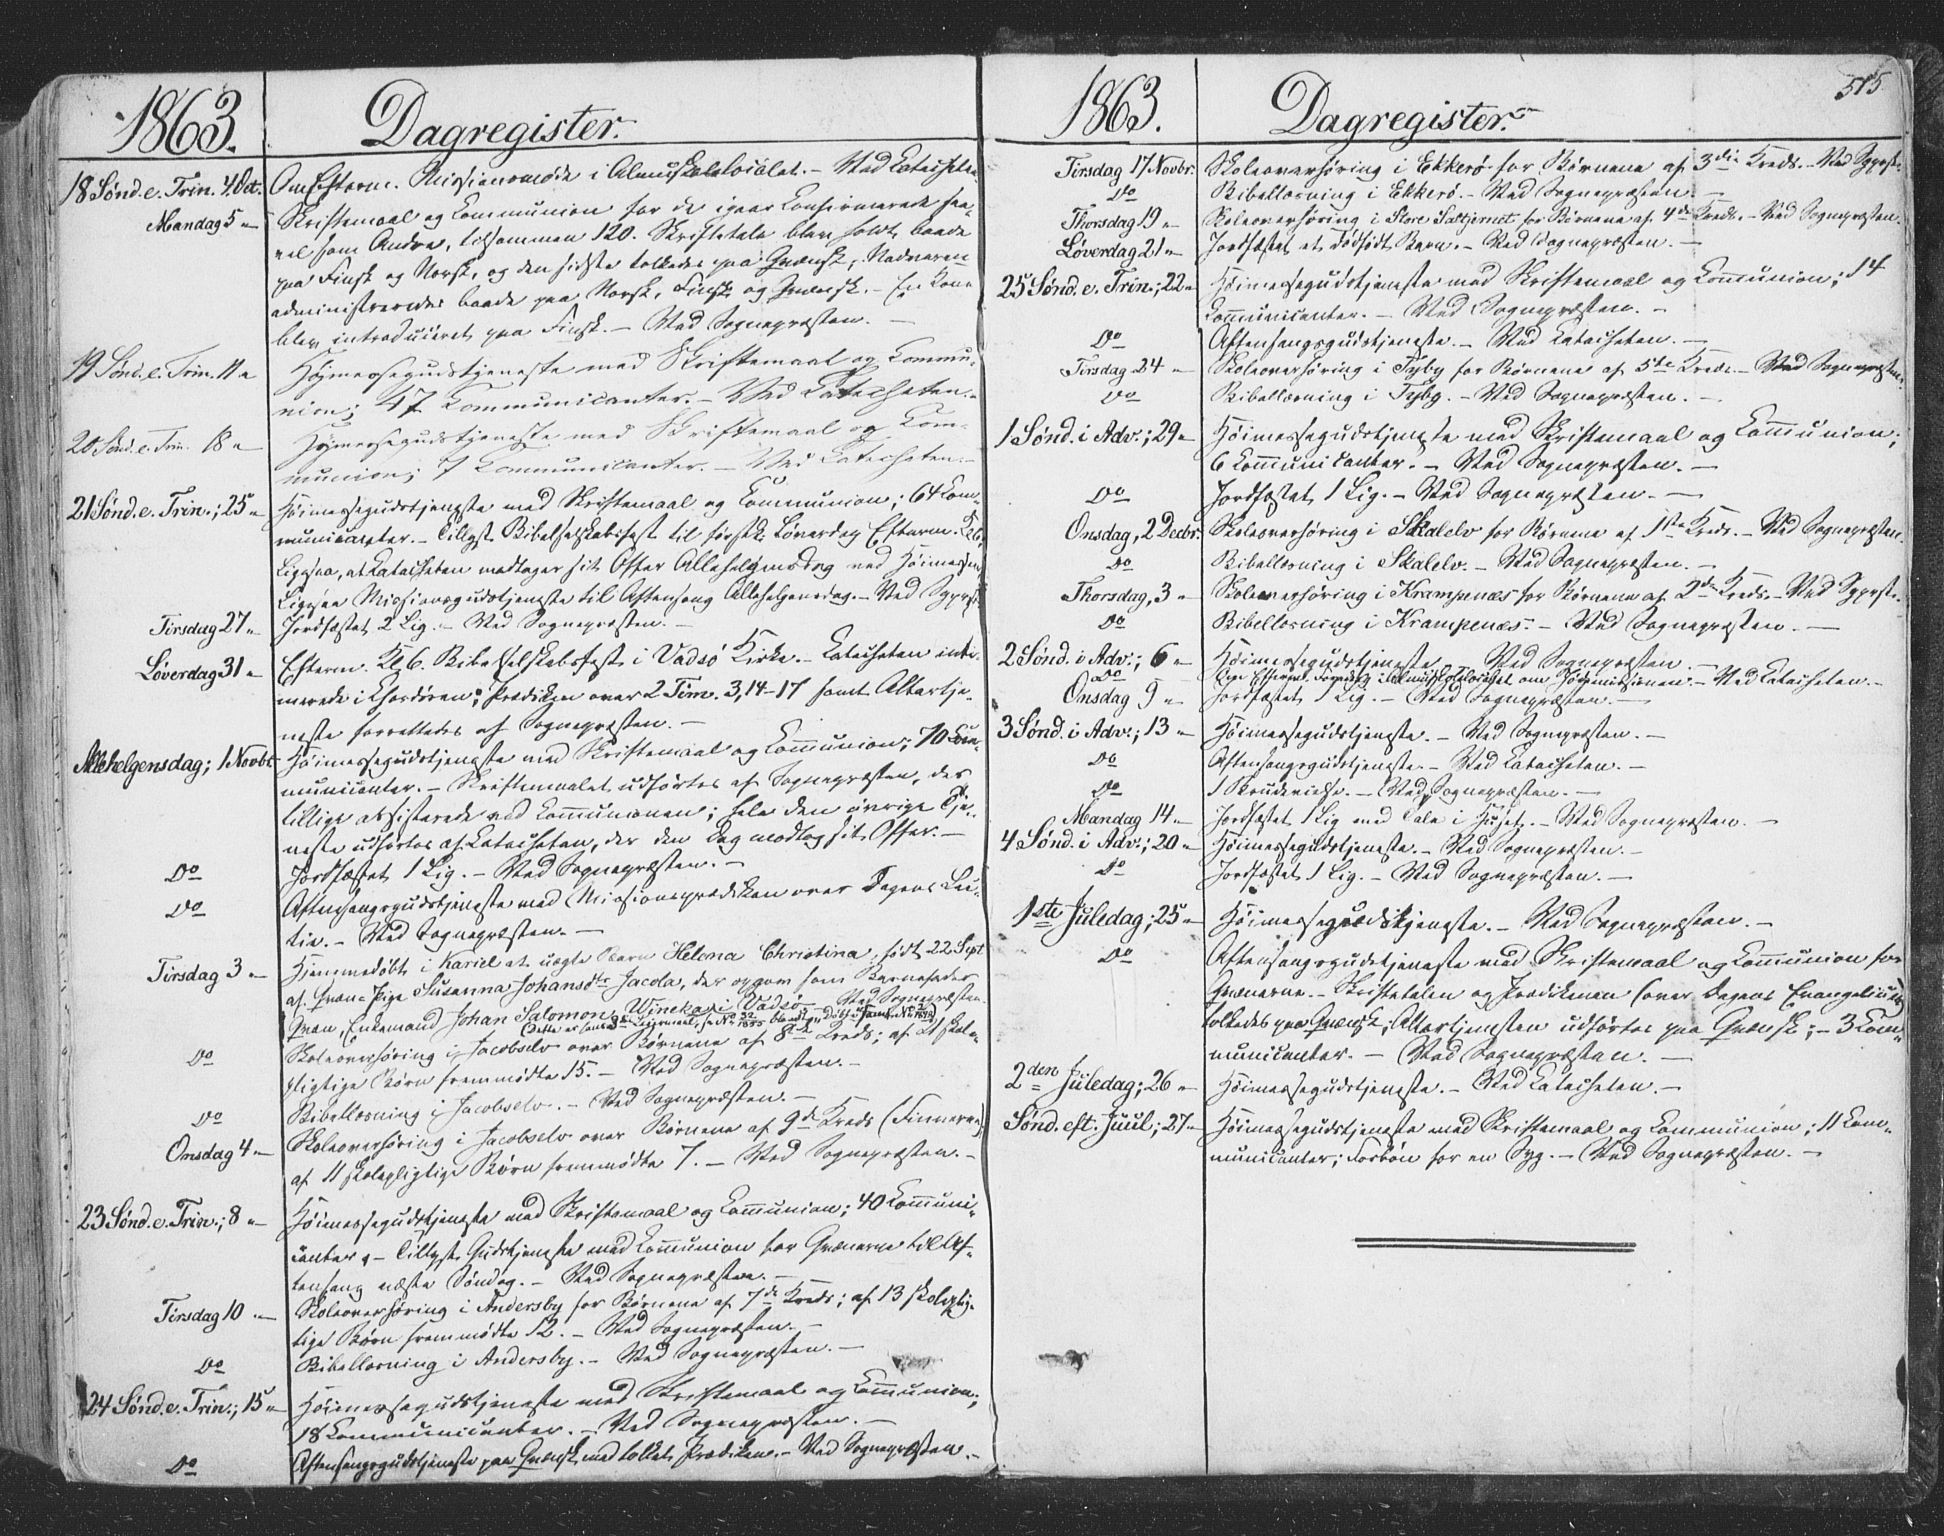 1863.
Dagregister.
18 Sønd. e. Trin. 4 Oct. Om Efterm. Missionsmøde i Almueskolelocalet. – Ved Catecheten.
Mandag 5 " Skriftemaal og Communion for de igaar Confirmerede saa-
vel som Andre, tilsammen 120. Skriftetale blev holdt baade
paa Finsk og Norsk, og den sidste tolkedes paa Qvænsk, Nadveren
administreredes baade paa Norsk, Finsk og Qvænsk. – En Kone
blev introduceret paa Finsk. – Ved Sognepræsten. –
19 Sønd. e. Trin. 11 " Høimessegudstjeneste med Skriftemaal og Commu-
nion; 47 Communicanter. – Ved Catecheten. –
20 Sønd. e. Trin. 18 " Høimessegudstjeneste med Skriftemaal og Com-
munion; 7 Communicanter. – Ved Catecheten. –
21 Sønd. e. Trin.; 25 " Høimessegudstjeneste med Skriftemaal og Communion; 64 Com-
municanter. – Tillyst Bibelselskabsfest til førstk. Løverdag Efterm. Kl. 6,
Ligesaa, at Catecheten modtager sit Offer Allehelgensdag ved Høimessen,
Ligesaa Missionsgudstjeneste til Aftensang Allehelgensdag. – Ved Sgprst.
Tirsdag 27 " Jordfæstet 2 Lig. – Ved Sognepræsten. –
Løverdag 31 " Efterm. Kl. 6. Bibelselskabsfest i Vadsø Kirke. – Catecheten inti-
merede i Chordøren; Prædiken over 2 Tim. 3,14-17 samt Altertje-
neste forrettedes af Sognepræsten. –
Allehelgensdag; 1 Novbr. Høimessegudstjeneste med Skriftemaal og Communion; 70 Com-
municanter. – Skriftemaalet udførtes af Sognepræsten, der
tillige assisterede ved Communionen; hele den øvrige Tje-
neste udførtes af Catecheten, der den Dag modtog sit Offer. –
Do Jordfæstet 1 Lig. – Ved Sognepræsten. –
Do Aftensangsgudstjeneste med Missionsprædiken over Dagens Lec-
tie. – Ved Sognepræsten. –
Tirsdag 3 " Hjemmedøbt i Kariel et uægte Barn Helena Christina, født 22 Sept
af Qvæn-Pige Susanna Johansdtr Jacola, der opgav som Barnefader
Qvæn, Enkemand Johan Salomon Wineka i Vadsø. – Ved Sognepræsten.
Do Skoleoverhøring i Jacobselv over Børnene af 8de Kreds; af 21 skole-
pligtige Børn fremmødte 15. – Ved Sognepræsten. –
Do Bibellæsning i Jacobselv. – Ved Sognepræsten. –
Onsdag 4 " Skoleoverhøring i Jacobselv over Børnene af 9de Kreds (Finnerne)
af 11 skolepligtige Børn fremmødte 7. – Ved Sognepræsten. –
23 Sønd. e. Trin.; 8 " Høimessegudstjeneste med Skriftemaal og Communion; 40 Communi-
canter. – Tillyst Gudstjeneste med Communion for Qvænerne til Af-
tensang næste Søndag. – Ved Sognepræsten. –
Tirsdag 10 " Skoleoverhøring i Andersby for Børnene af 7de Kreds; af 13 skoleplig-
tige Børn fremmødte 12. – Ved Sognepræsten. –
Do Bibellæsning i Andersby. – Ved Sognepræsten. –
24 Sønd. e. Trin.; 15 " Høimessegudstjeneste med Skriftemaal og Communion;
18 Communicanter. – Ved Sognepræsten. –
Do Aftensangsgudstjeneste paa Qvænsk med tolket Prædiken. – Ved Sognepræsten. –
1863.
Dagregister.
515
Tirsdag 17 Novbr. Skoleoverhøring i Ekkerø for Børnene af 3die Kreds. – Ved Sgprst.
Do Bibellæsning i Ekkerø. – Ved Sognepræsten. –
Thorsdag 19 " Skoleoverhøring i Store Saltjernet for Børnene af 4de Kreds. – Ved Sognepræsten.
Løverdag 21 " Jordfæstet et dødfødt Barn. – Ved Sognepræsten. –
25 Sønd. e. Trin.; 22 " Høimessegudstjeneste med Skriftemaal og Communion; 14
Communicanter. – Ved Sognepræsten. –
Do Aftensangsgudstjeneste. – Ved Catecheten. –
Tirsdag 24 " Skoleoverhøring i Tyby for Børnene af 5te Kreds. – Ved Sognepræsten.
Do Bibellæsning i Tyby. – Ved Sognepræsten. –
1 Sønd. i Adv.; 29 " Høimessegudstjeneste med Skriftemaal og Communion;
6 Communicanter. – Ved Sognepræsten. –
Do Jordfæstet 1 Lig. – Ved Sognepræsten. –
Onsdag, 2 Decbr. Skoleoverhøring i Skalelv for Børnene af 1ste Kreds. – Ved Sognepræsten.
Do Bibellæsning i Skalelv. – Ved Sognepræsten. –
Thorsdag, 3 " Skoleoverhøring i Krampenæs for Børnene af 2den Kreds. – Ved Sgprst.
Do Bibellæsning i Krampenæs. – Ved Sognepræsten. –
2 Sønd. i Adv.; 6 " Høimessegudstjeneste. Ved Sognepræsten. –
Do Efterm. i Almueskolelocalet om Jødemissionen. – Ved Catecheten. –
Onsdag 9 " Jordfæstet 1 Lig. – Ved Sognepræsten. –
3 Sønd. i Adv.; 13 " Høimessegudstjeneste. – Ved Sognepræsten. –
Do Aftensangsgudstjeneste. – Ved Catecheten. –
Do 1 Brudevielse. – Ved Sognepræsten. –
Mandag 14 " Jordfæstet 1 Lig med Tale i Huset. – Ved Sognepræsten. –
4 Sønd. i Adv.; 20 " Høimessegudstjeneste. – Ved Sognepræsten. –
Do Jordfæstet 1 Lig. – Ved Sognepræsten. –
1ste Juledag; 25 " Høimessegudstjeneste. – Ved Sognepræsten. –
Do Aftensangsgudstjeneste med Skriftemaal og Communion for
Qvænerne. – Skriftetalen og Prædikenen (over Dagens Evangelium)
tolkedes paa Qvænsk; Altertjenesten udførtes paa Qvænsk; – 3 Com-
municanter. – Ved Sognepræsten. –
2den Juledag; 26 " Høimessegudstjeneste. – Ved Catecheten. –
Sønd. eft. Juul; 27 " Høimessegudstjeneste med Skriftemaal og Communion; 11 Com-
municanter; Forbøn for en Syg. – Ved Sognepræsten. –